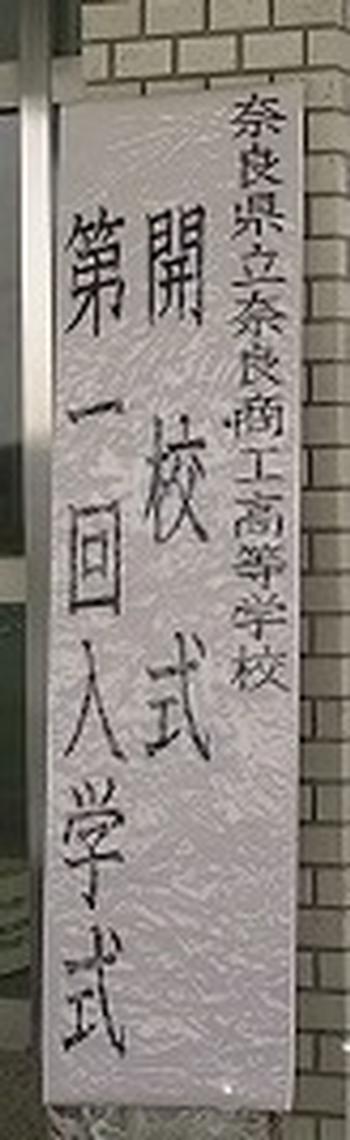 奈良県立奈良商工高等学校
開校式
第一回入学式